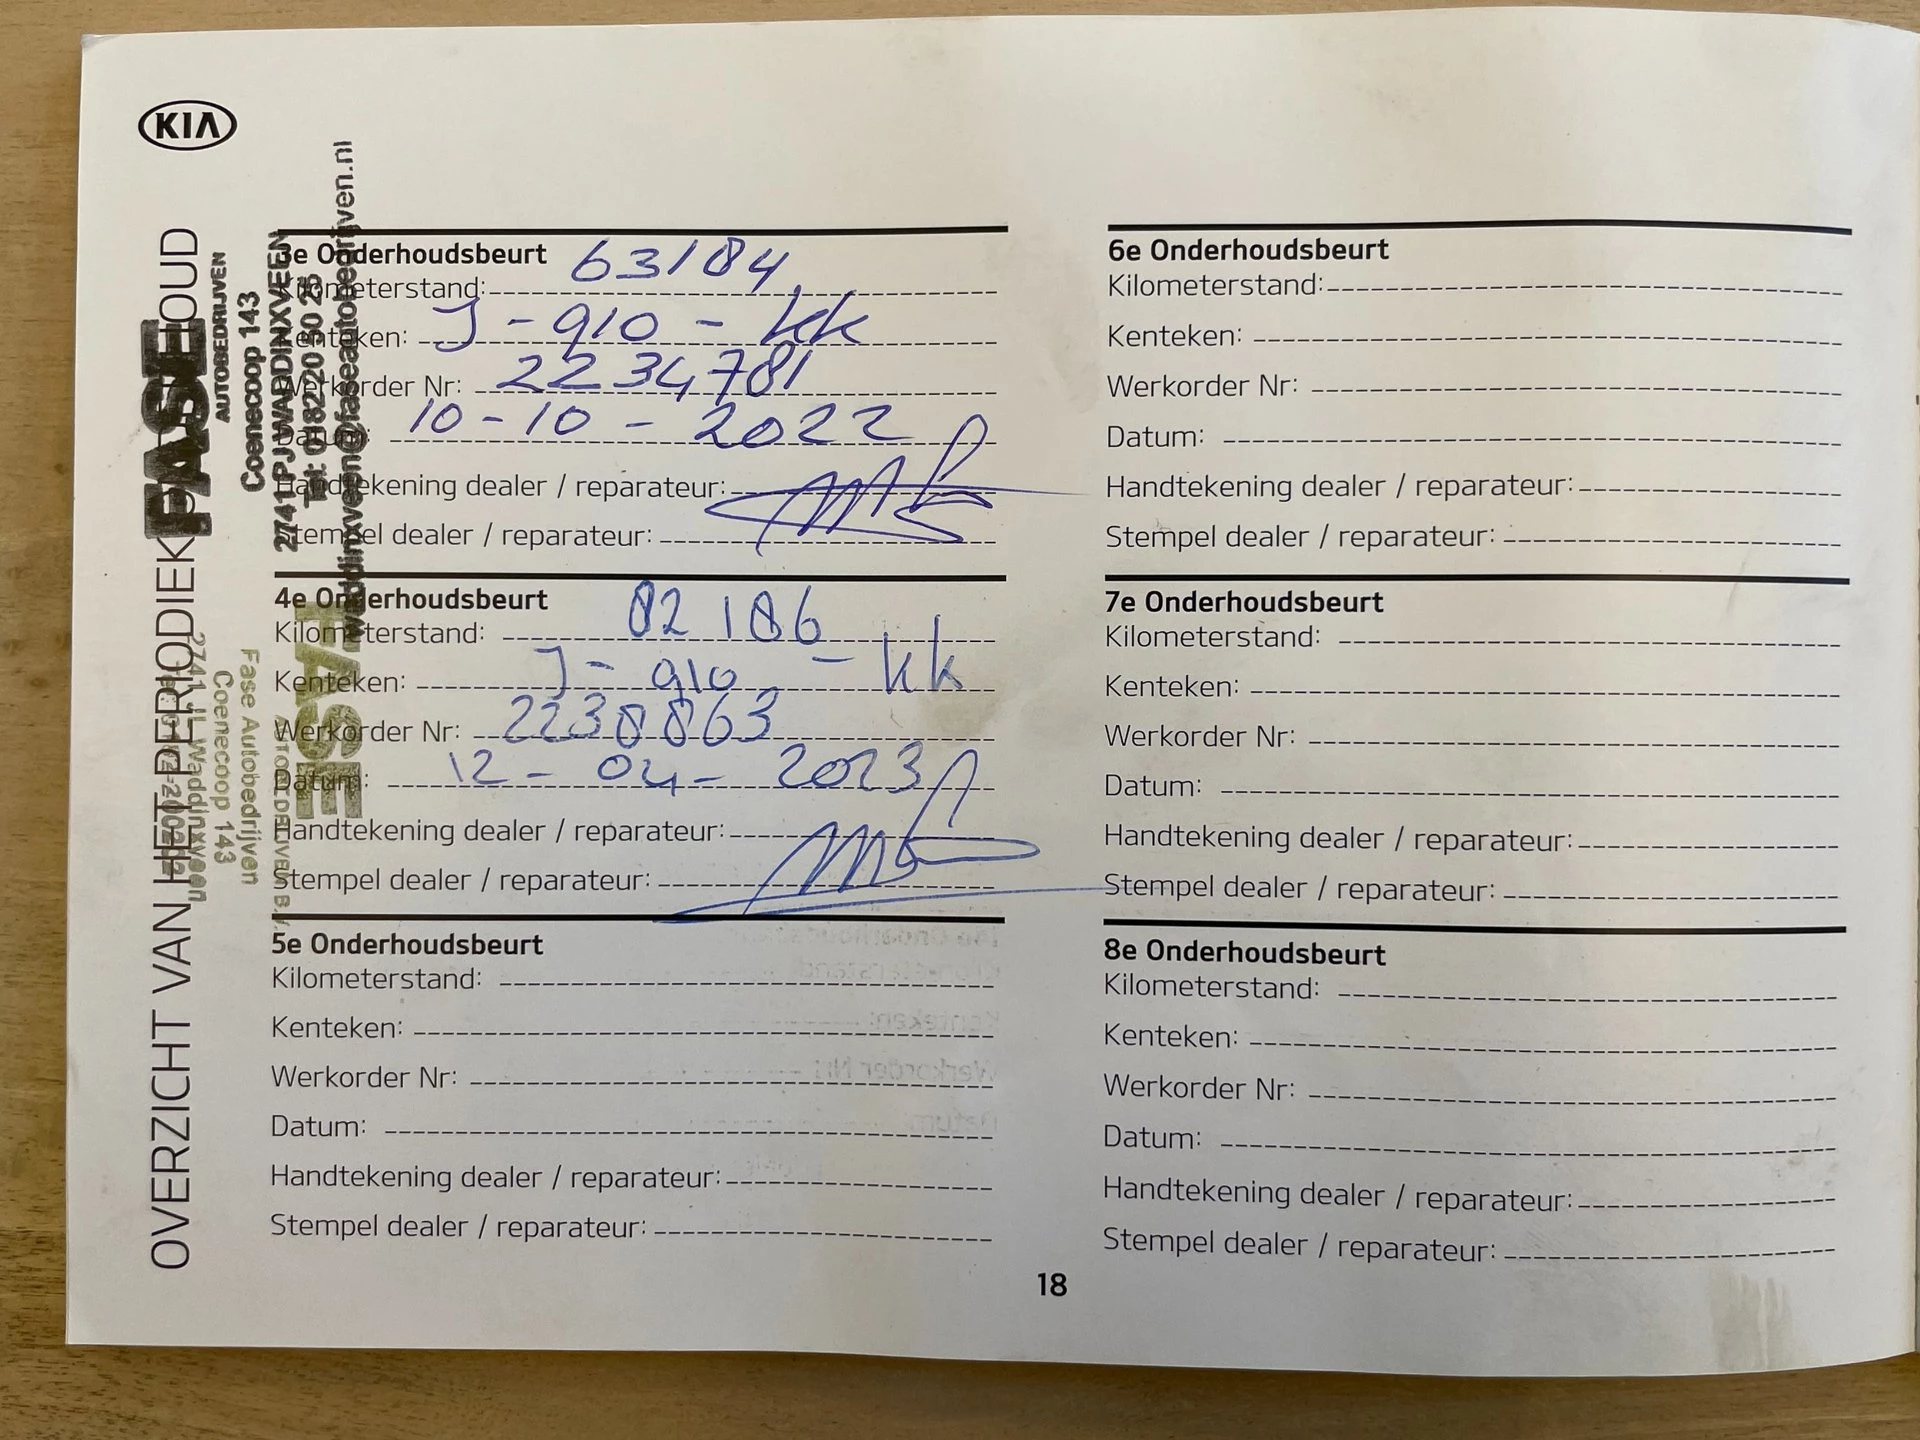 KIA
OVERZICHT VAN HET PERIODIEK ONDERHOUD
FASE
AUTOBEDRIJVEN
Coenecoop 143
2741 PJ WADDINXVEEN
Tel: 0182
waddinxveen@faseautobedrijven.nl
3e Onderhoudsbeurt
Kilometerstand: 63184
Kenteken: J-910-kk
Werkorder Nr: 2234781
Datum: 10-10-2022
Handtekening dealer / reparateur:
Stempel dealer / reparateur:
FASE
AUTOBEDRIJVEN B.V.
Fase Autobedrijven
Coenecoop 143
Waddinxveen
4e Onderhoudsbeurt
Kilometerstand: 82186
Kenteken: J-910-kk
Werkorder Nr: 2230863
Datum: 12-04-2023
Handtekening dealer / reparateur:
Stempel dealer / reparateur:
5e Onderhoudsbeurt
Kilometerstand:
Kenteken:
Werkorder Nr:
Datum:
Handtekening dealer / reparateur:
Stempel dealer / reparateur:
6e Onderhoudsbeurt
Kilometerstand:
Kenteken:
Werkorder Nr:
Datum:
Handtekening dealer / reparateur:
Stempel dealer / reparateur:
7e Onderhoudsbeurt
Kilometerstand:
Kenteken:
Werkorder Nr:
Datum:
Handtekening dealer / reparateur:
Stempel dealer / reparateur:
8e Onderhoudsbeurt
Kilometerstand:
Kenteken:
Werkorder Nr:
Datum:
Handtekening dealer / reparateur:
Stempel dealer / reparateur:
18